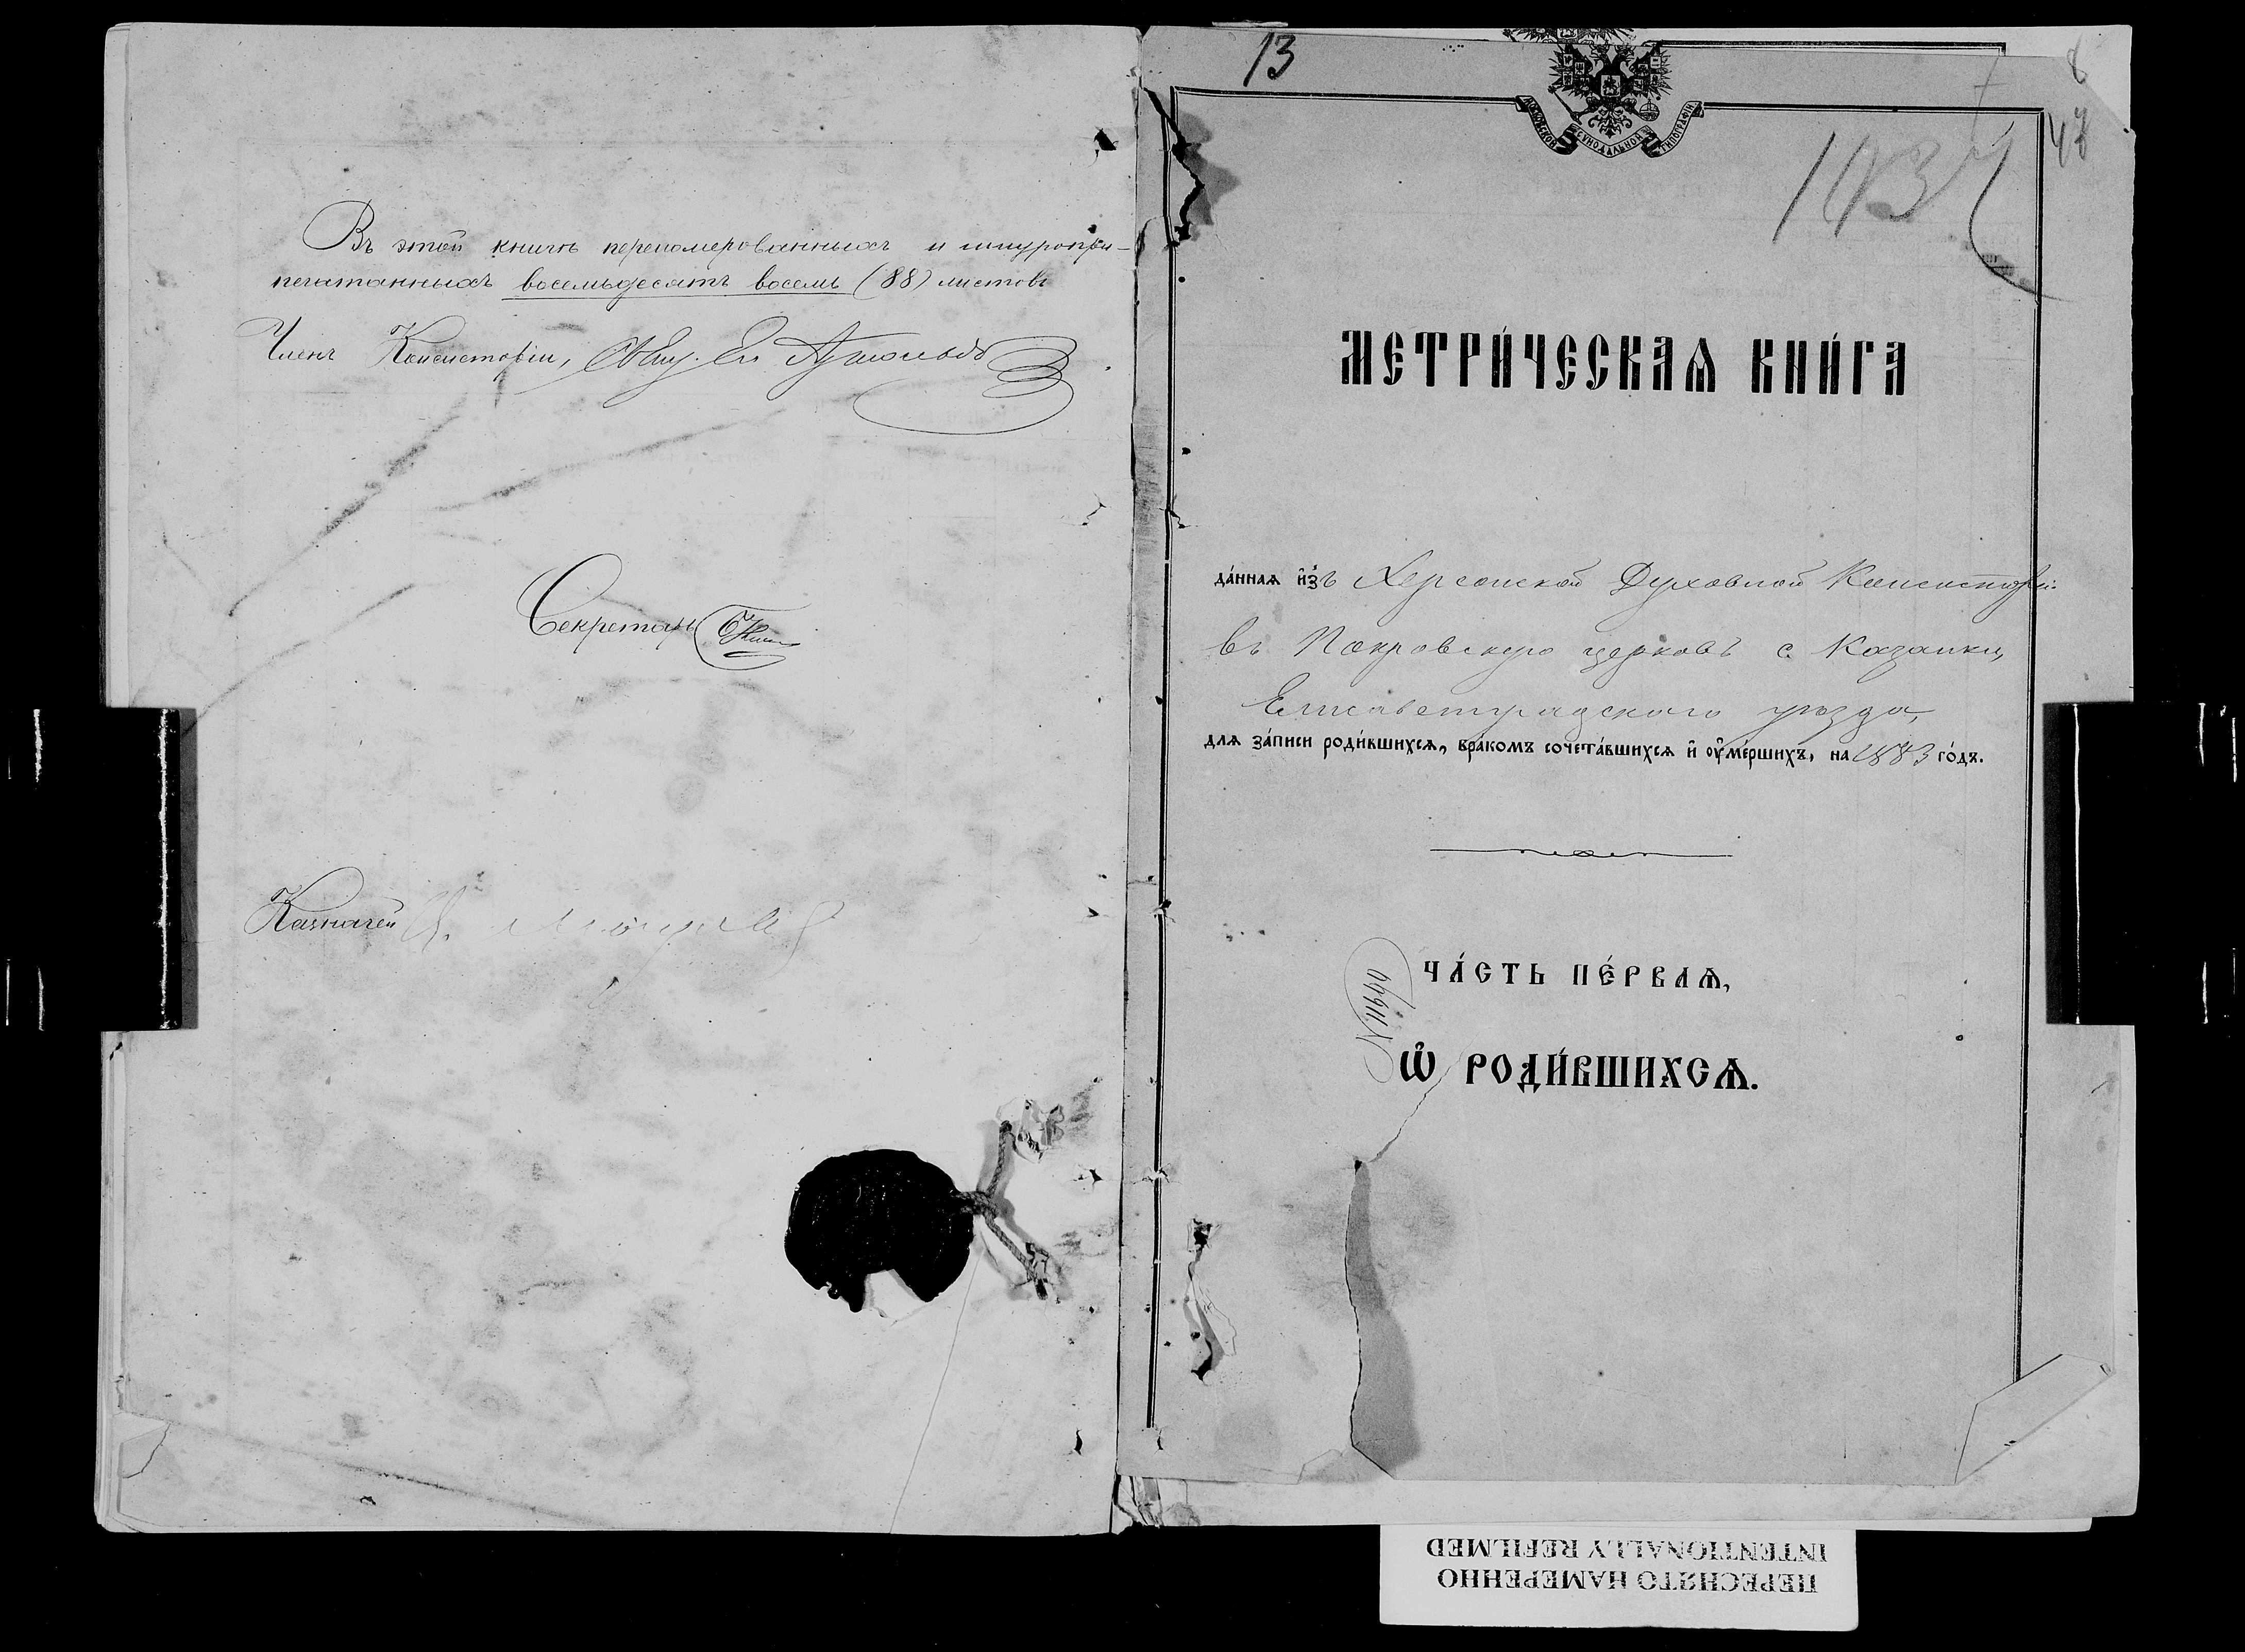 Въ этой книгѣ перенумерованныхъ и шнуропри-
печатанныхъ восемьдесятъ восемь (88) листовъ
Членъ Консисторіи,
Секретарь
Казначей
13
8
48
МОСКОВСКОЙ СѴНОДАЛЬНОЙ ТИПОГРАФІИ
МЕТРИ́ЧЕСКАѦ КНИ́ГА
да́ннаѧ и҆зъ Херсонской Духовной Консисторіи
въ Покровскую церковь с. Казанки,
Елисаветградского уѣзда,
длѧ за́писи роди́вшихсѧ, бра́комъ сочета́вшихсѧ и҆ ѹ҆ме́ршихъ, на 1883 го́дъ.
ЧА́СТЬ ПЕ́РВАѦ,
N 11660
Ѡ҆ РОДИ́ВШИХСѦ.
ПЕРЕСНЯТО НАМЕРЕННО
INTENTIONALLY REFILMED